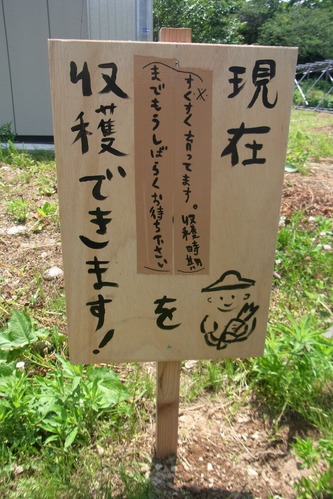 現在
すくすく育ってます。収穫時期
までもうしばらくお待ち下さい
を
収穫できます!